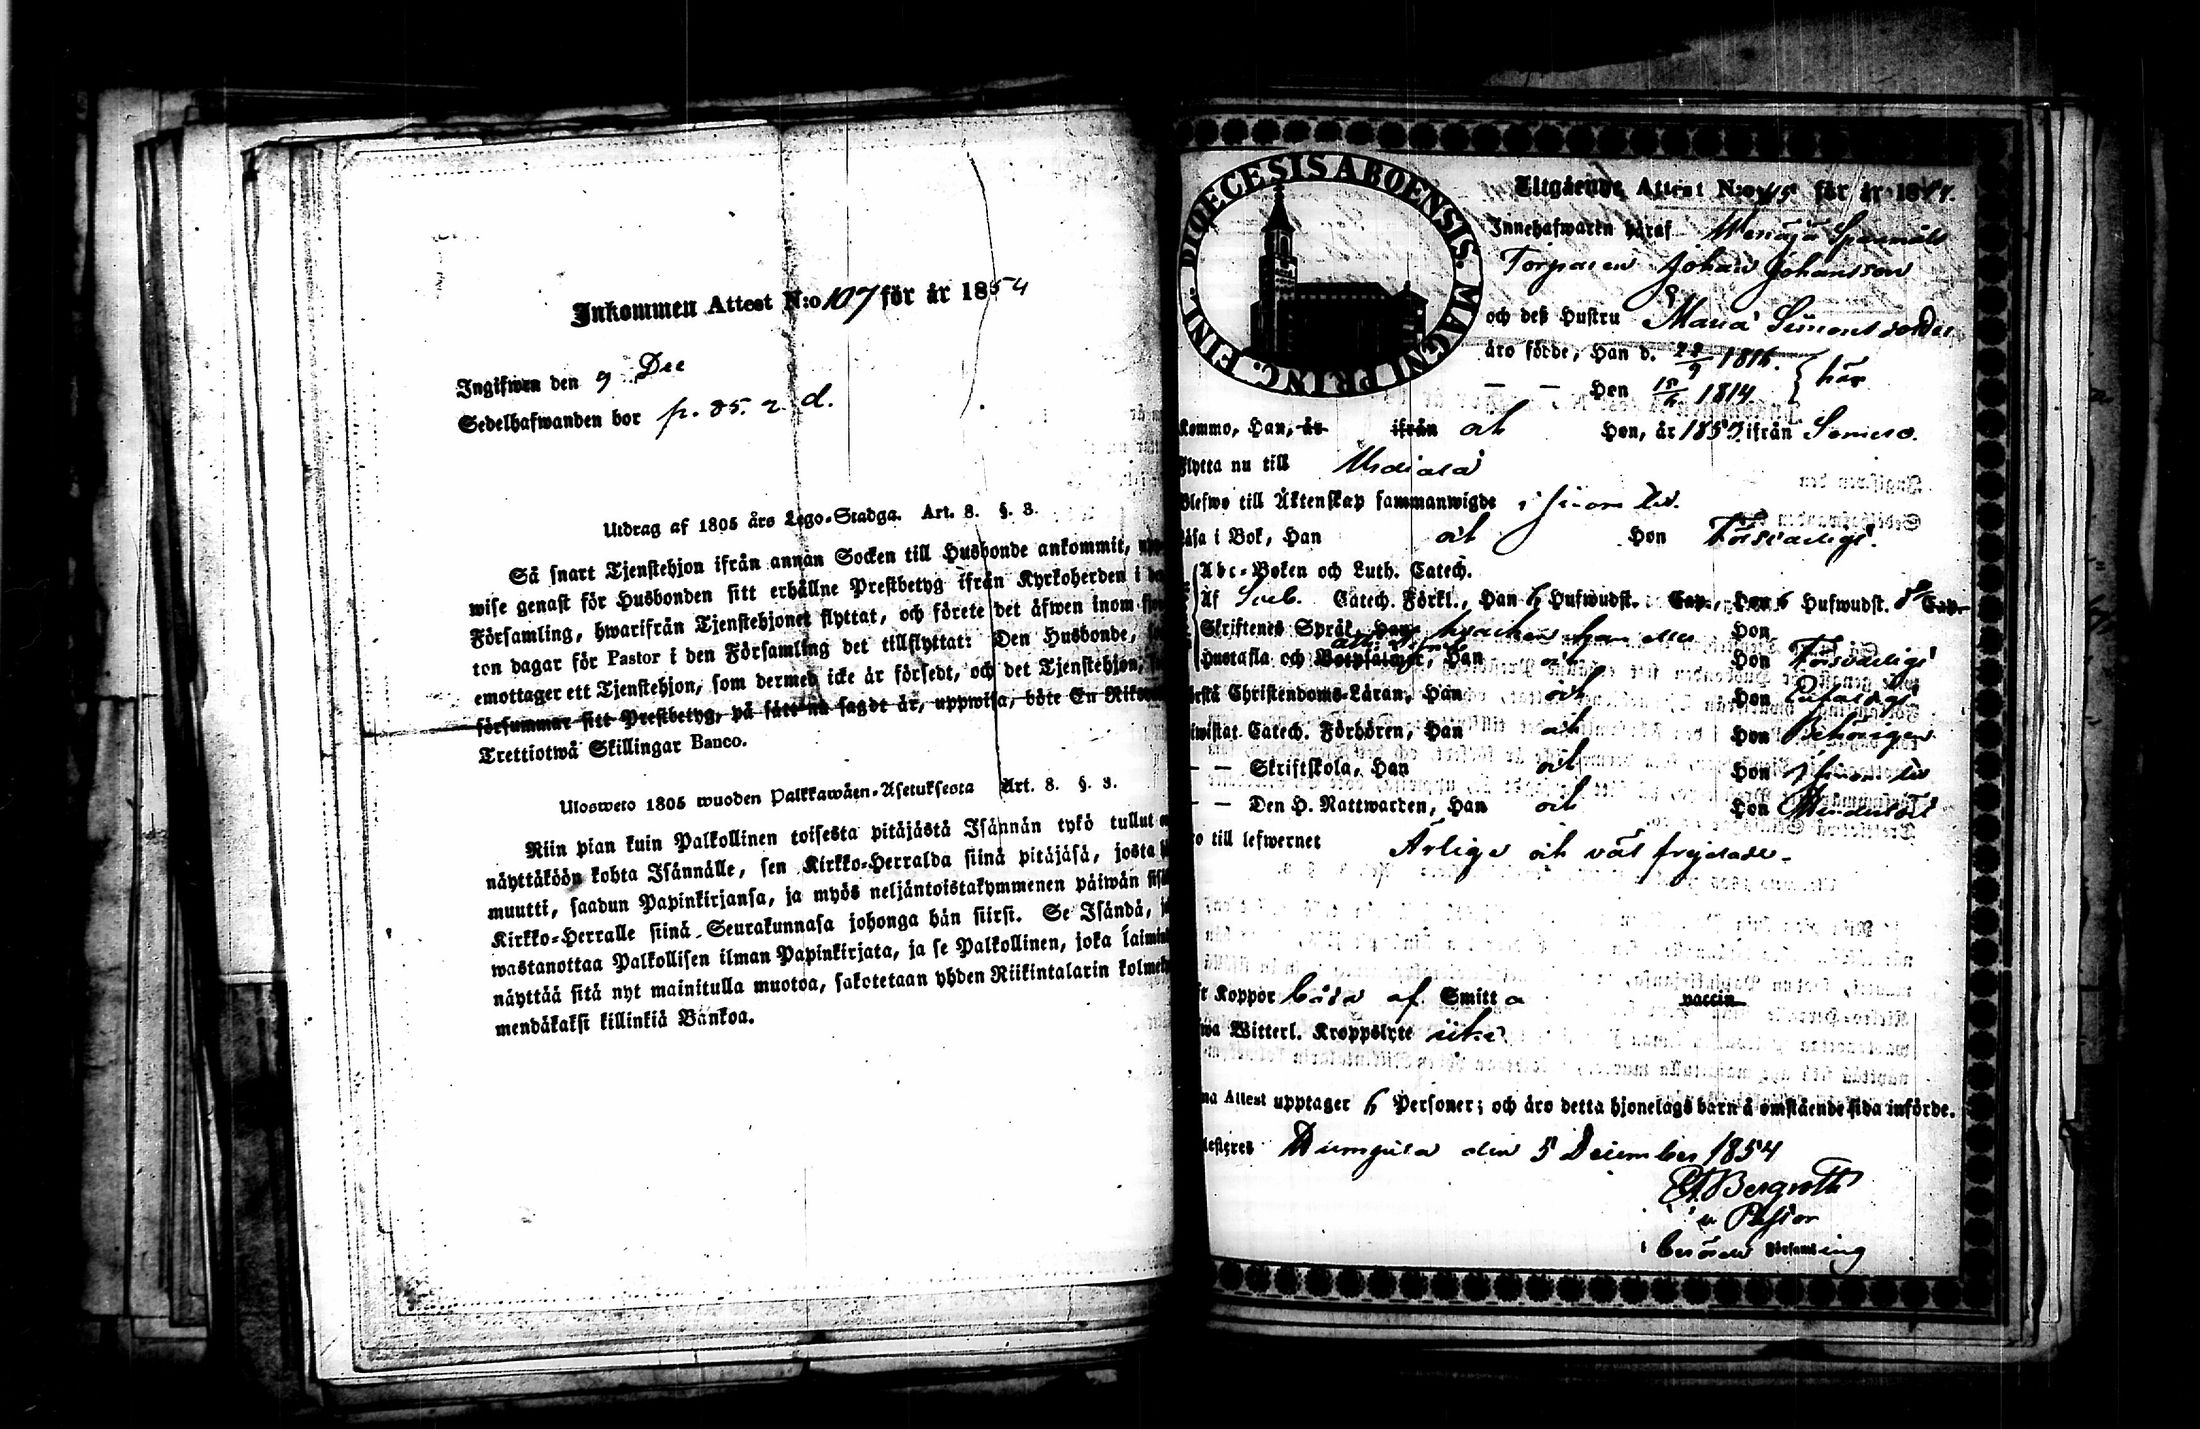 Inkommen Attest N:o 107 för år 1854
Ingifwen den 9 Dec
Sedelhafwanden bor p. 85. 2 d.
Utdrag af 1805 års Lego-Stadga. Art. 8. §. 3.
Så snart Tjenstehjon ifrån annan Socken till Husbonde ankommit,
wise genast för Husbonden sitt erhållne Prestbetyg ifrån Kyrkoherden i
Församling, hwarifrån Tjenstehjonet flyttat, och förete det äfwen inom
ton dagar för Pastor i den Församling det tillflyttat: Den Husbonde,
emottager ett Tjenstehjon, som dermed icke är försedt, och det Tjenstehjon,
försummar sitt Prestbetyg, på sätt nu sagdt är, uppwisa, böte En
Trettiotwå Skillingar Banco.
Ulosweto 1805 wuoden Palkkawäen-Asetuksesta Art. 8. §. 3.
Niin pian kuin Palkollinen toisesta pitäjästä Isännän tykö tullut
näyttäköön kohta Isännälle, sen Kirkko-Herralda siinä pitäjäsä, josta
muutti, saadun Papinkirjansa, ja myös neljäntoistakymmenen päiwän
Kirkko-Herralle siinä Seurakunnasa johonga hän siirsi. Se Isändä,
wastanottaa Palkollisen ilman Papinkirjata, ja se Palkollinen, joka
näyttää sitä nyt mainitulla muotoa, sakotetaan yhden Riikintalarin
mendäkaksi killinkiä Bankoa.
DIOECESIS ABOENSIS. MAGNI PRINC. FINL.
Utgående Attest N:o 45 för år 1854.
Innehafwaren häraf
Torparen Johan Johansson
och deß Hustru Maria Simonsdotter
äro födde, Han d. 22/9 1816.
— — Hon 15/6 1814 } här
Kommo, Han, år ifrån och Hon, år 1853 ifrån Somero.
flytta nu till Urdiala
Blefwo till Äktenskap sammanwigde i sinom tid.
läsa i Bok, Han och Hon Förswarligt.
Abc-Boken och Luth. Catech.
Af Sveb. Catech. Förkl., Han 6 Hufwudst. Cap., Hon 6 Hufwudst. Cap.
Skriftenes Språk, Han Hon
Hustafla och Botpsalmer, Han och Hon Förswarligt
Christendoms-Läran, Han och Hon
Catech. Förhören, Han och Hon Behörigen
— — Skriftskola, Han och Hon i sinom tid
— — Den H. Nattwarden, Han och Hon
till lefwernet Ärliga och väl frejdade.
Koppor båda af Smitta vaccin
Witterl. Kroppslyte icke
Attest upptager 6 Personer; och äro detta hjonelags barn å omstående sida införde.
den 5 December 1854
Bergroth
Pastor
Församling